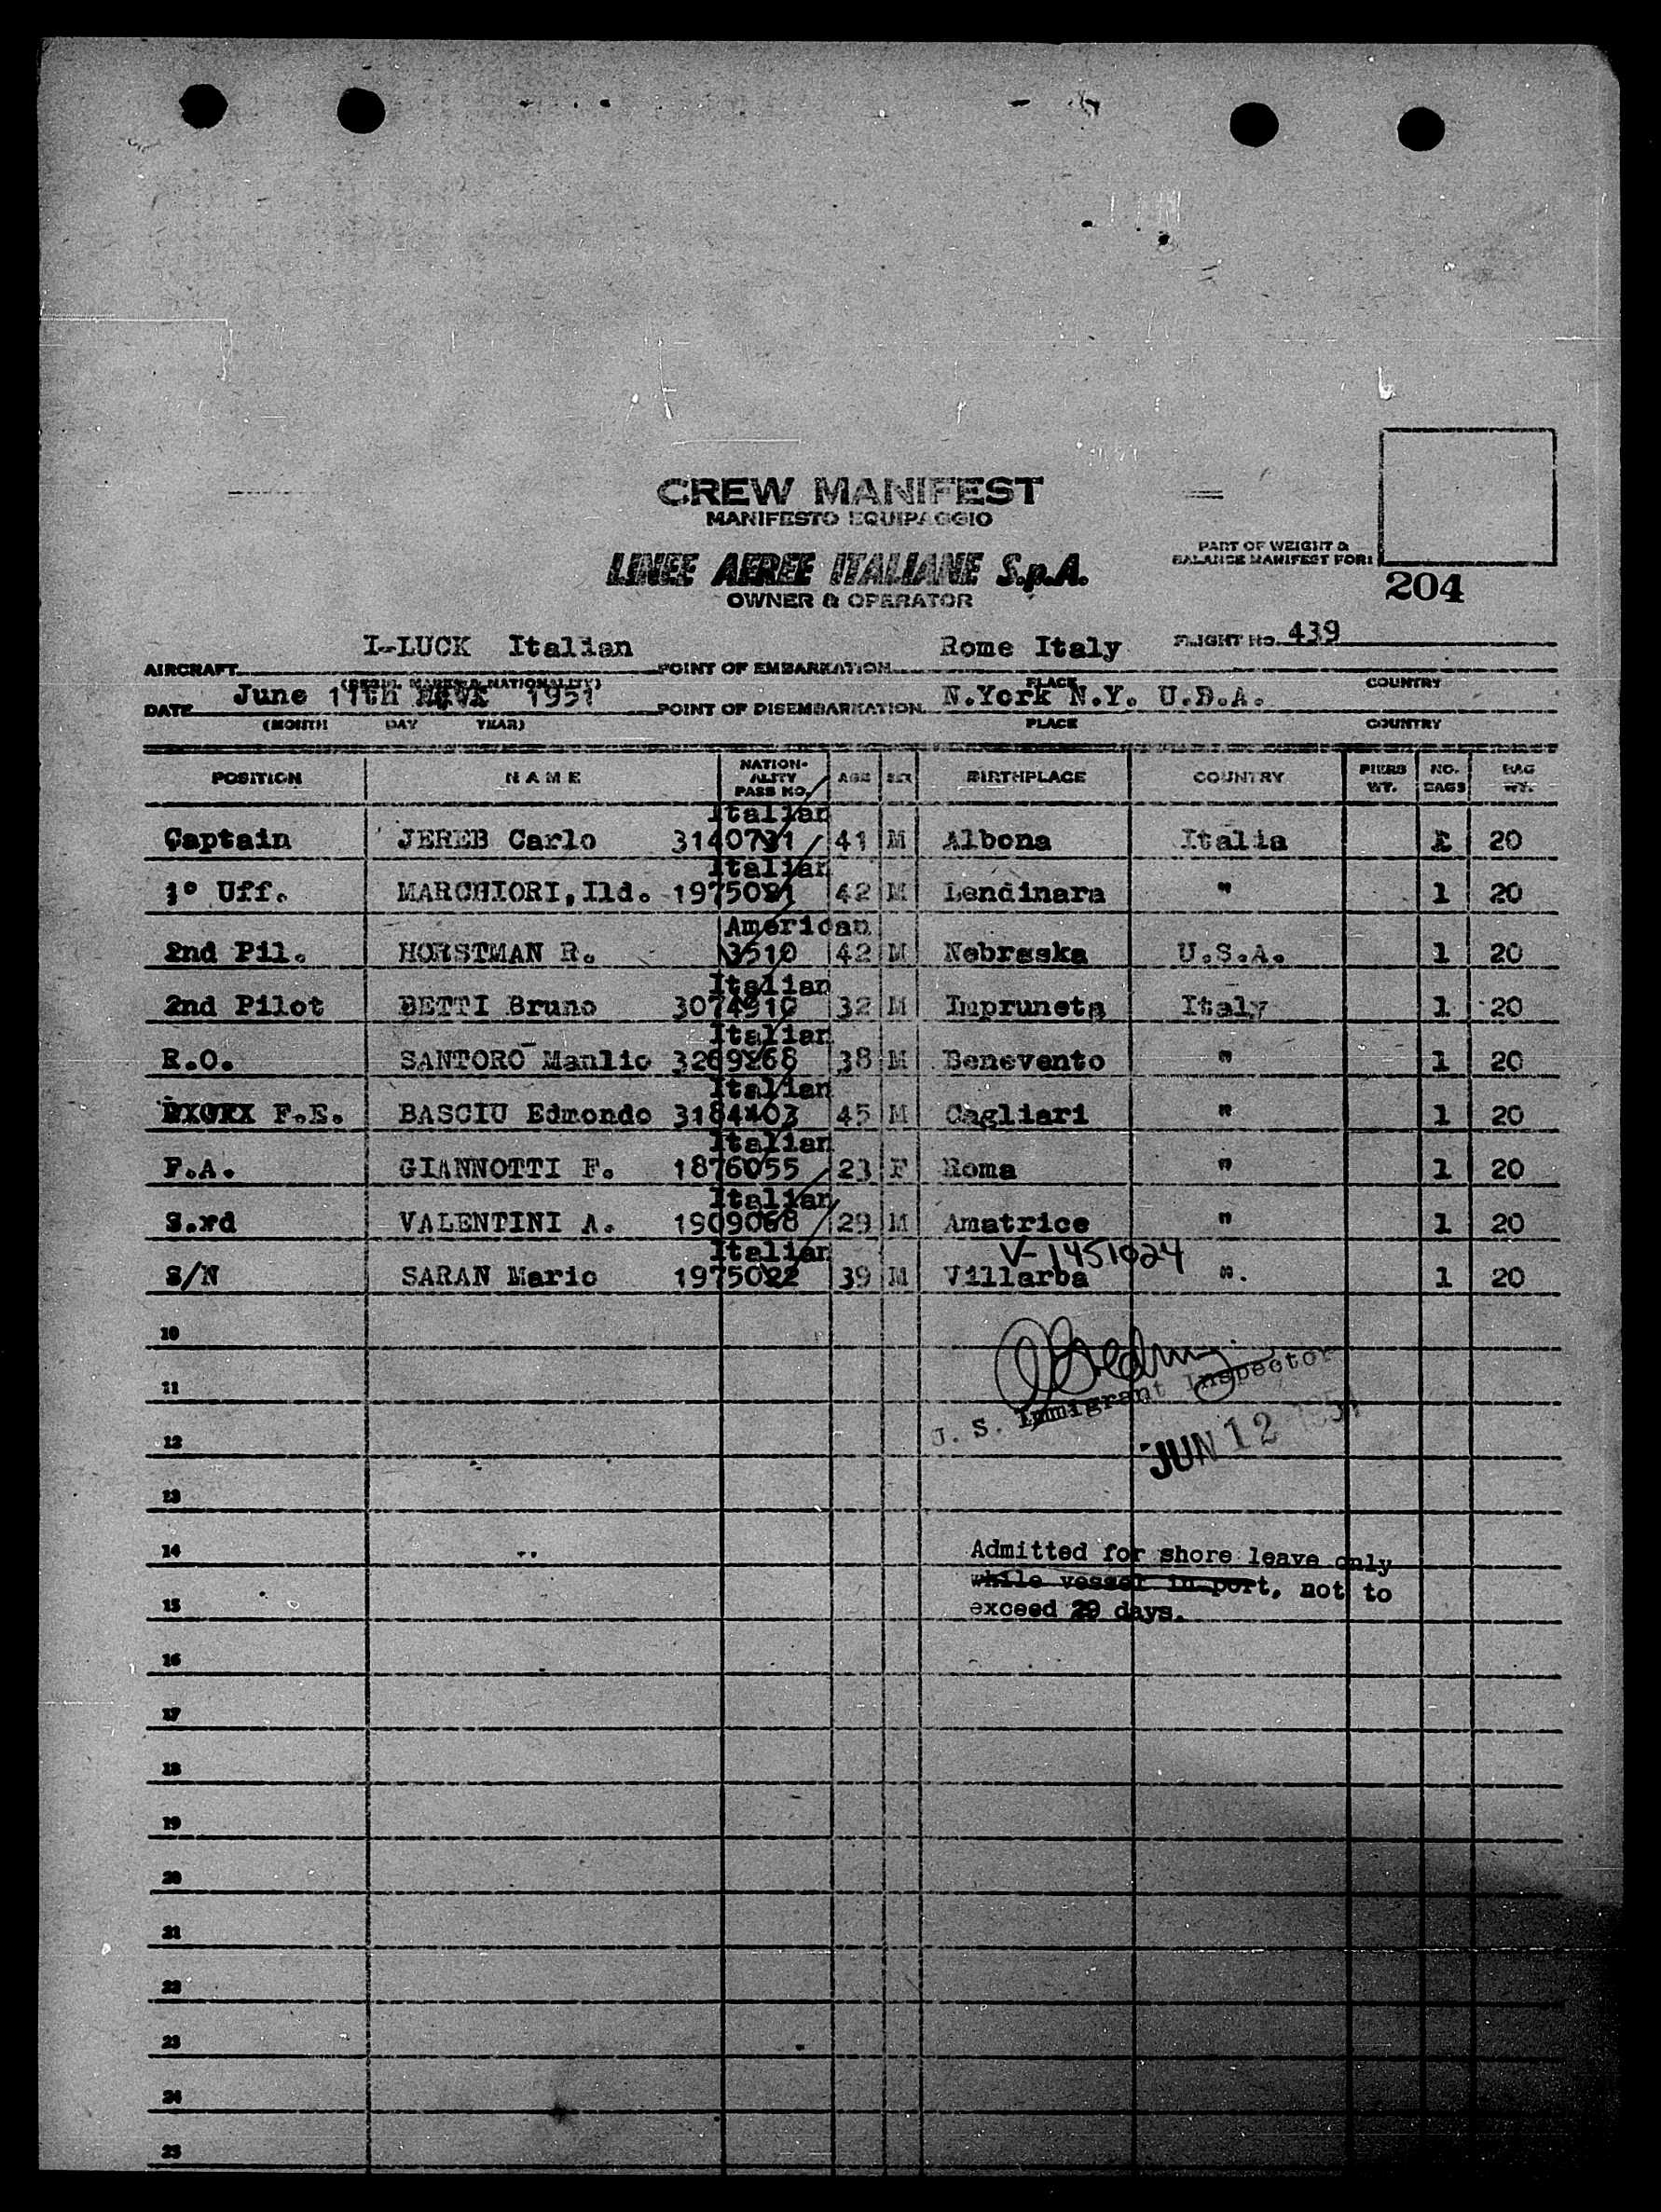 CREW MANIFEST
MANIFESTO EQUIPAGGIO
LINEE AEREE ITALIANE S.p.A.
OWNER & OPERATOR
PART OF WEIGHT &
BALANCE MANIFEST FOR:
204
AIRCRAFT I-LUCK Italian POINT OF EMBARKATION Rome Italy FLIGHT NO. 439
(REGIS. MARKS & NATIONALITY) PLACE COUNTRY
DATE June 11th 1951 POINT OF DISEMBARKATION N.York N.Y. U.S.A.
(MONTH DAY YEAR) PLACE COUNTRY
POSITION NAME NATION-ALITY PASS NO. AGE SEX BIRTHPLACE COUNTRY PIERS WT. NO. BAGS BAG WT.
Italian
Captain JEREB Carlo 3140731 41 M Albona Italia 20
Italian
1° Uff. MARCHIORI, Ild. 1975081 42 M Lendinara " 1 20
American
2nd Pil. HORSTMAN R. 3510 42 M Nebraska U.S.A. 1 20
Italian
2nd Pilot BETTI Bruno 3074910 32 M Impruneta Italy 1 20
Italian
R.O. SANTORO Manlio 3269268 38 M Benevento " 1 20
Italian
F.E. BASCIU Edmondo 3184403 45 M Cagliari " 1 20
Italian
F.A. GIANNOTTI F. 1876055 23 F Roma " 1 20
Italian
S.rd VALENTINI A. 1909068 29 M Amatrice " 1 20
Italian V-1451024
S/N SARAN Mario 1975022 39 M Villarba ". 1 20
10
11
U. S. Immigrant Inspector
12
JUN 12 1951
13
14
Admitted for shore leave only
while vessel in port, not to
15
exceed 29 days.
16
17
18
19
20
21
22
23
24
25